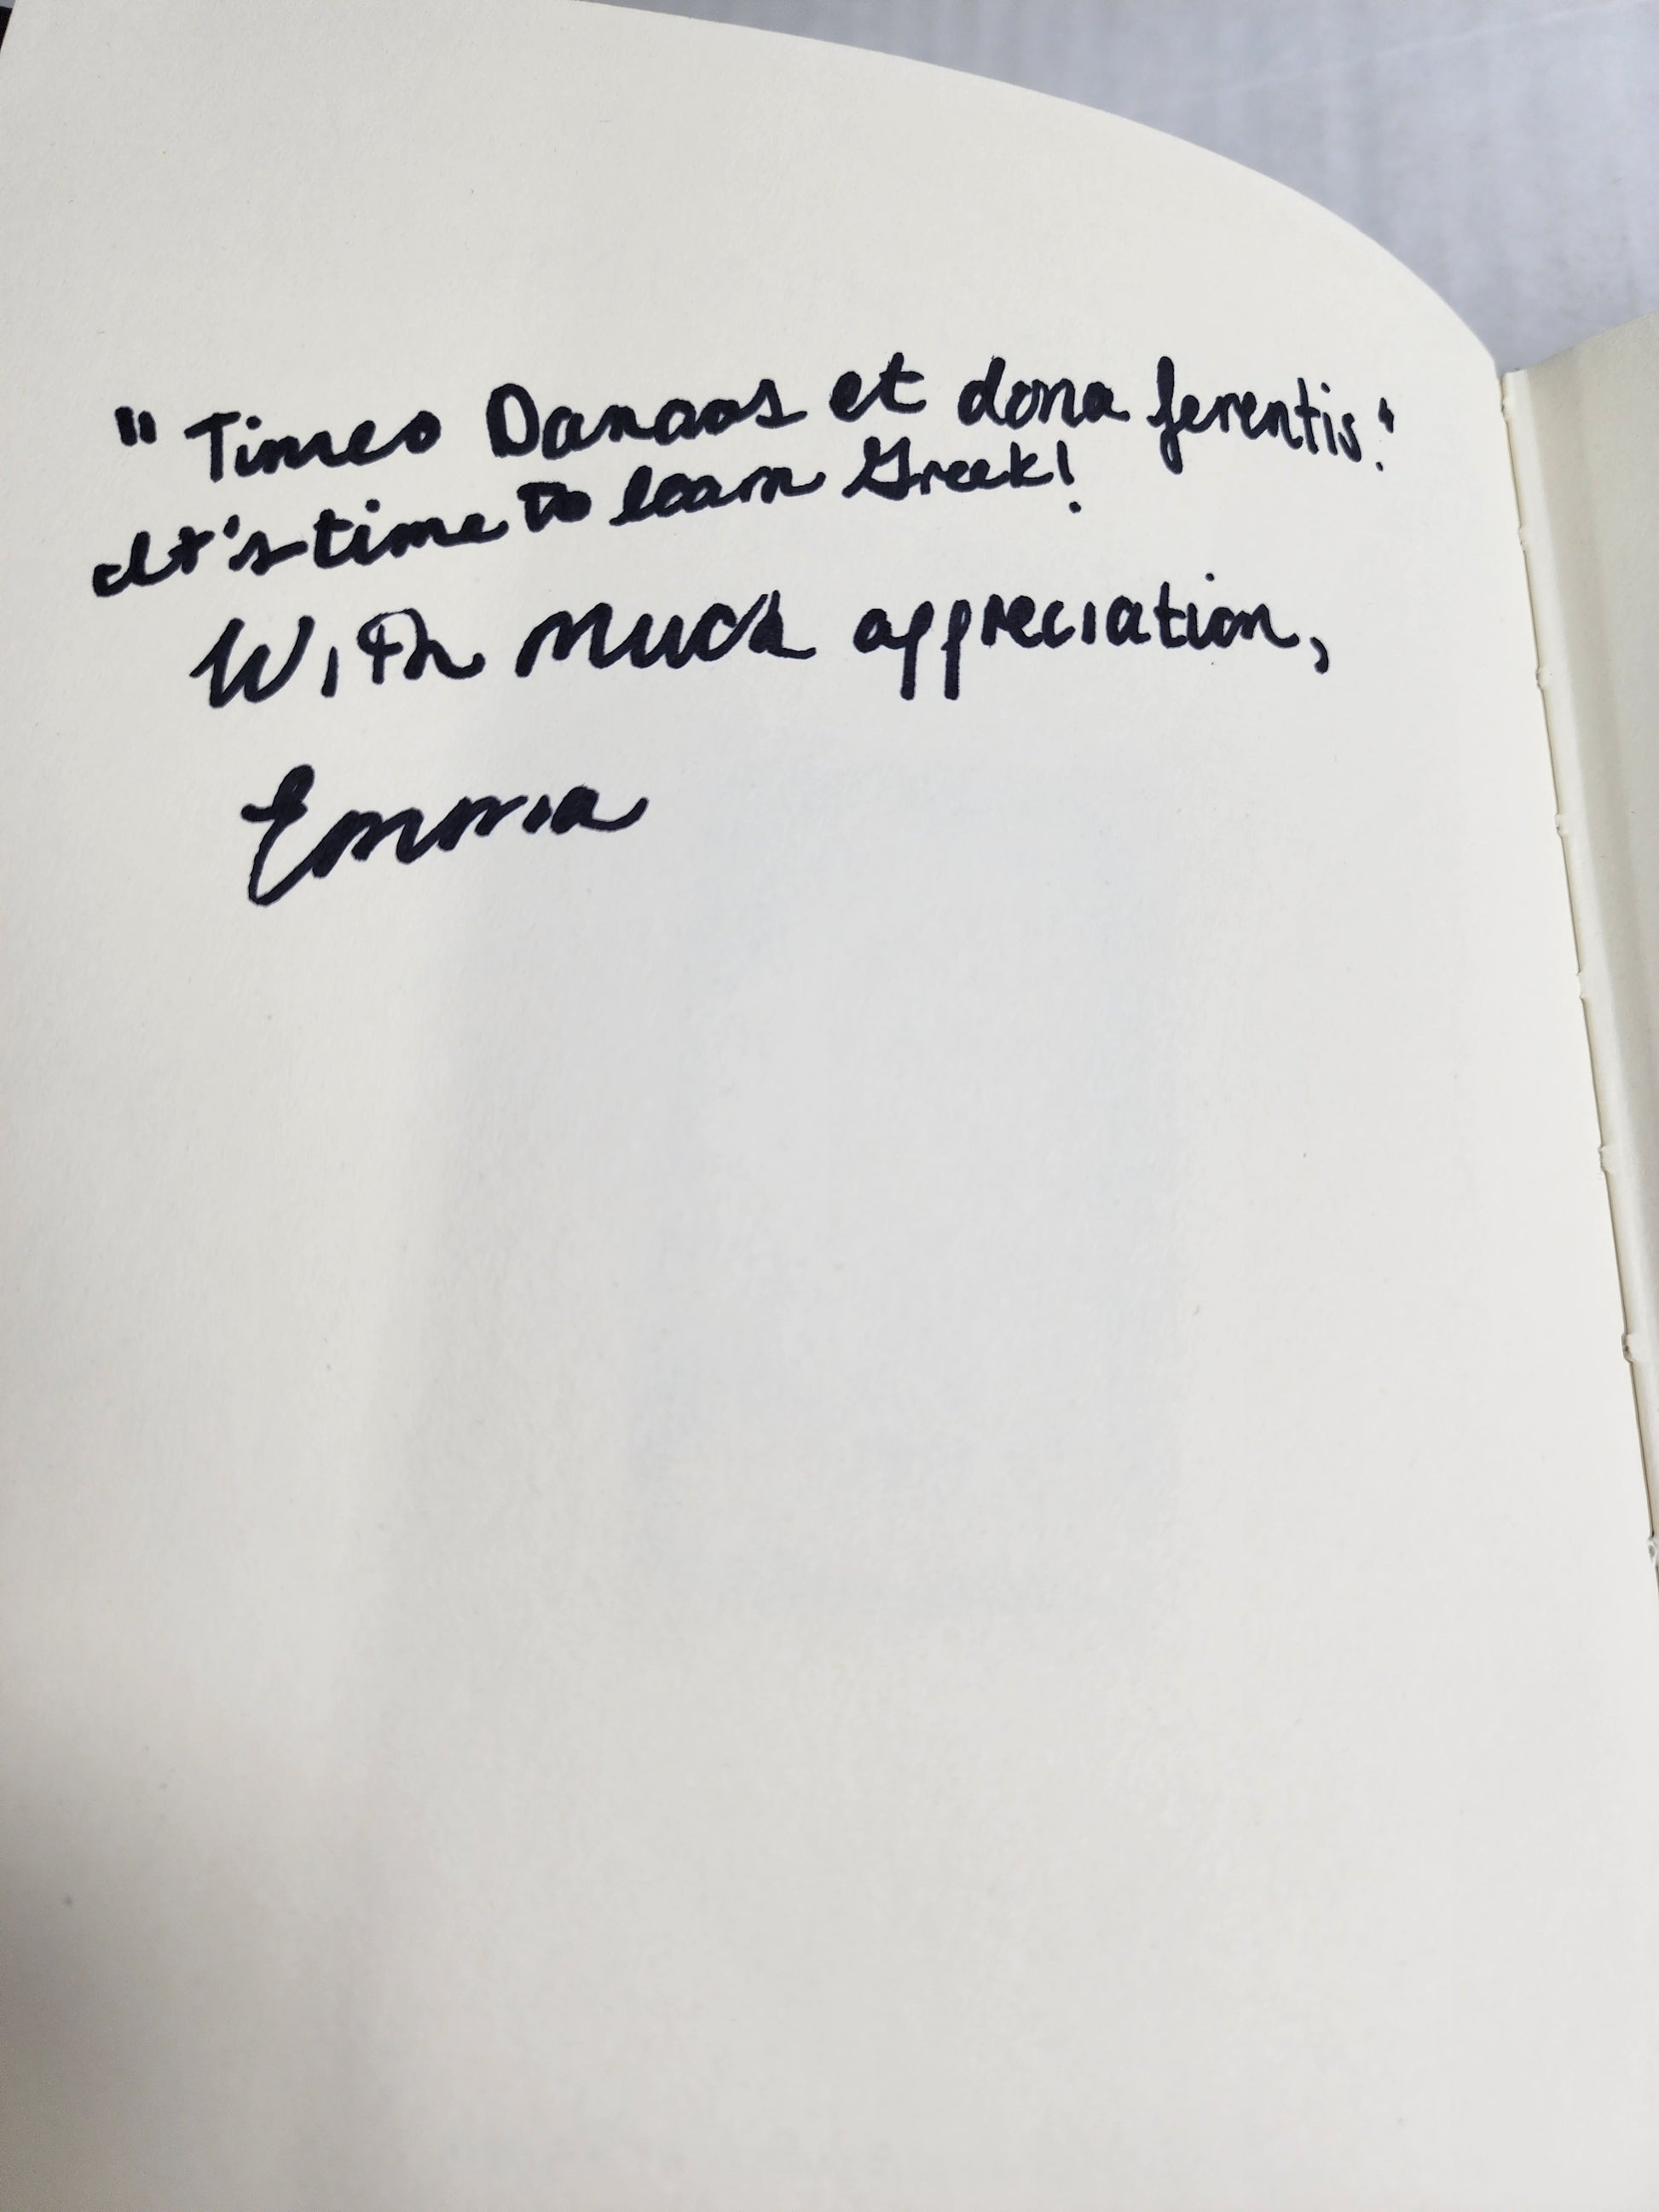 "Timeo Danaos et dona ferentis."
It's time to learn Greek!
With much appreciation,
Emma